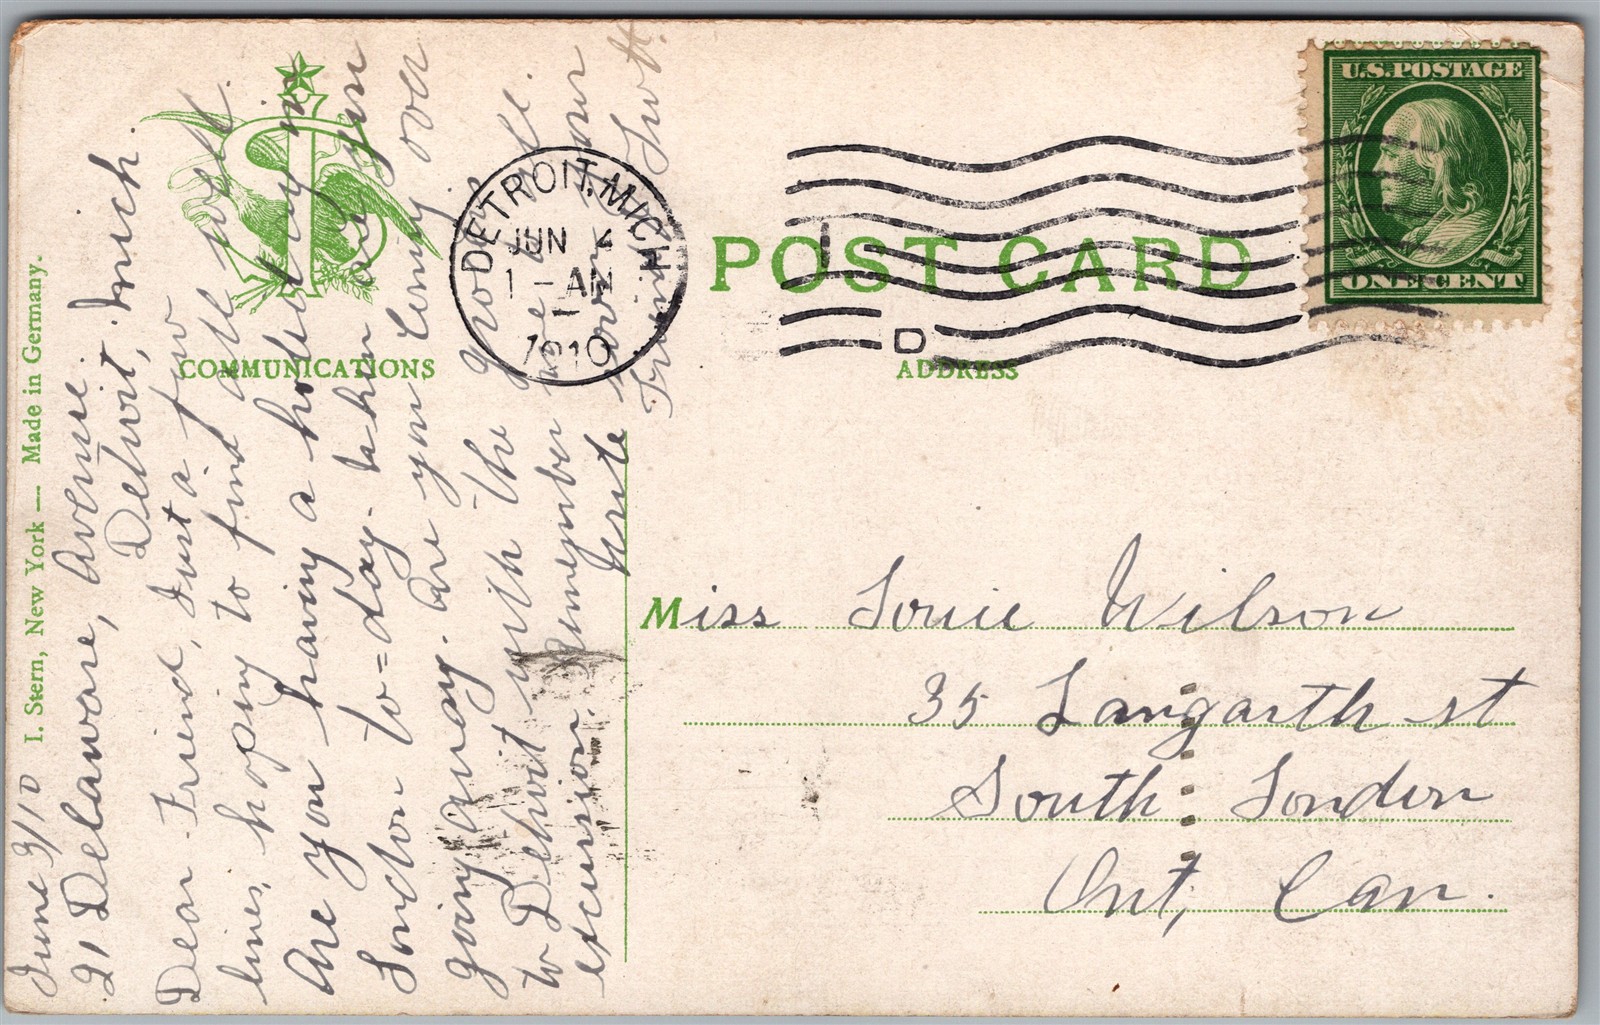 I. Stern, New York — Made in Germany.
June 3/10
21 Delaware, Avenue.
Detroit, Mich.
Dear Friend, Just a few
lines, hoping to find all well.
Are you having a holiday in
London to=day. When are you
going away. Are you coming over
to Detroit with the
excursion. Remember me to
Write soon
Friend
COMMUNICATIONS
DETROIT, MICH.
JUN 4
1 - AM
1910
D
POST CARD
ADDRESS
U.S. POSTAGE
ONE CENT
Miss Louie Wilson
35 Langarth st
South London
Ont, Can.